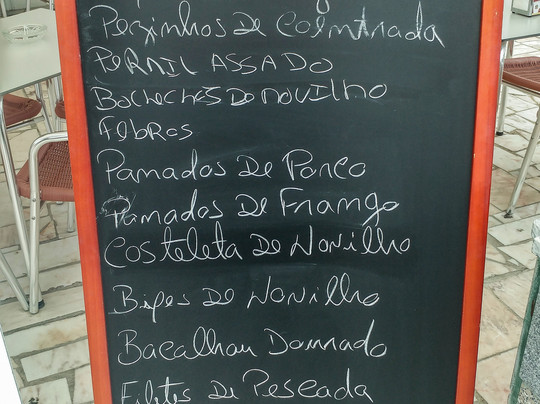 Pezinhos de Coimtrada
PERNIL ASSADO
Bochechas de NOVILHO
Febras
Panados de Porco
Panados de Frango
Costeleta de Novilho
Bifes de Novilho
Bacalhau Dourado
Filetes de Pescada